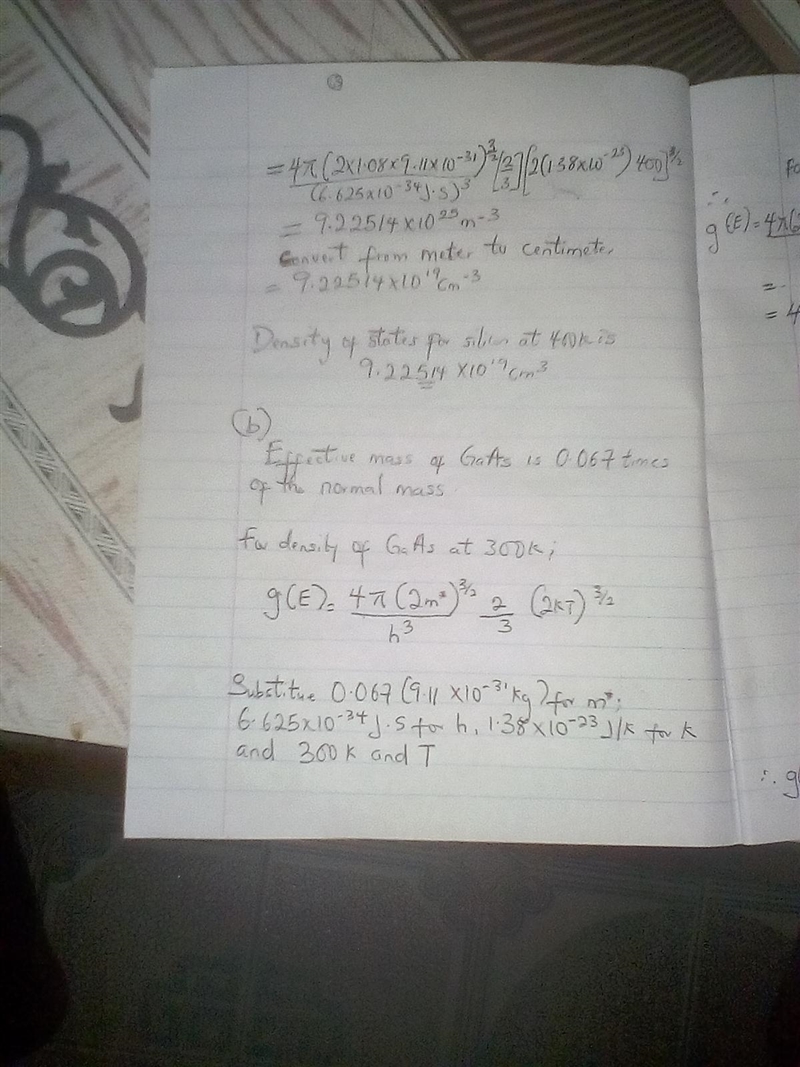 = 4π(2×1.08×9.11×10⁻³¹)^3/2 [2/3][2(1.38×10⁻²³)400]^3/2
(6.625×10⁻³⁴J·S)³
= 9.22514×10²⁵m⁻³
Convert from meter to centimeter
= 9.22514×10¹⁹cm⁻³
Density of states for silicon at 400k is
9.22514 ×10¹⁹cm³
(b)
Effective mass of GaAs is 0.067 times
of the normal mass.
For density of GaAs at 300k;
g(E)= 4π(2m*)^3/2 2/3 (2KT)^3/2
h³
Substitue 0.067(9.11 ×10⁻³¹kg) for m*;
6.625×10⁻³⁴J.S for h, 1.38×10⁻²³J/K for K
and 300k and T
∴
g(E)=
=
= 4
∴ g